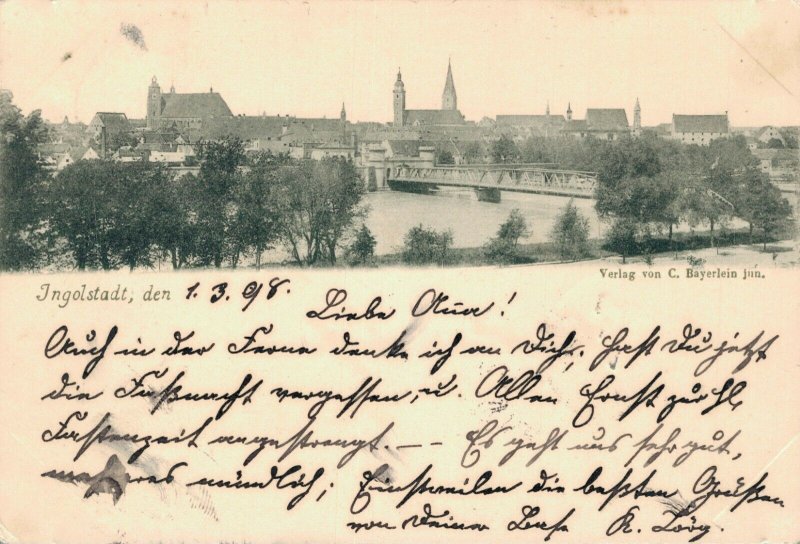 Verlag von C. Bayerlein jun.
Ingolstadt, den 1.3.98.
Liebe
Auch in der Ferne denke ich an Dich; hast Du jetzt
die Faßnacht vergessen, u. Allen Ernst zur hl.
Fastenzeit angestrengt. — — Es geht uns sehr gut,
mündlich; Einstweilen die besten Grüßen
von Deiner Base K. Lörz.